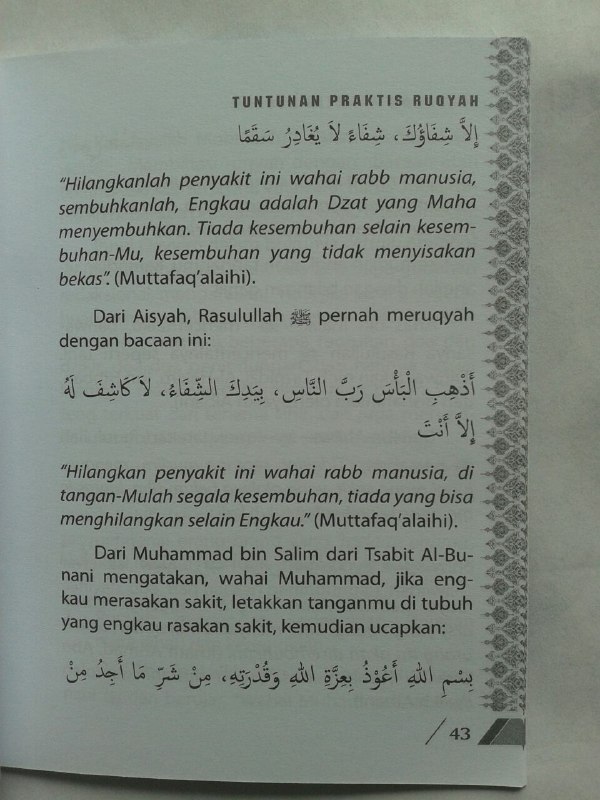 TUNTUNAN PRAKTIS RUQYAH
إِلاَّ شِفَاؤُكَ، شِفَاءً لاَ يُغَادِرُ سَقَمًا
“Hilangkanlah penyakit ini wahai rabb manusia,
sembuhkanlah, Engkau adalah Dzat yang Maha
menyembuhkan. Tiada kesembuhan selain kesem-
buhan-Mu, kesembuhan yang tidak menyisakan
bekas”. (Muttafaq’alaihi).
Dari Aisyah, Rasulullah ﷺ pernah meruqyah
dengan bacaan ini:
أَذْهِبِ الْبَأْسَ رَبَّ النَّاسِ، بِيَدِكَ الشِّفَاءُ، لاَ كَاشِفَ لَهُ
إِلاَّ أَنْتَ
“Hilangkan penyakit ini wahai rabb manusia, di
tangan-Mulah segala kesembuhan, tiada yang bisa
menghilangkan selain Engkau.” (Muttafaq’alaihi).
Dari Muhammad bin Salim dari Tsabit Al-Bu-
nani mengatakan, wahai Muhammad, jika eng-
kau merasakan sakit, letakkan tanganmu di tubuh
yang engkau rasakan sakit, kemudian ucapkan:
بِسْمِ اللهِ أَعُوْذُ بِعِزَّةِ اللهِ وَقُدْرَتِهِ، مِنْ شَرِّ مَا أَجِدُ مِنْ
43